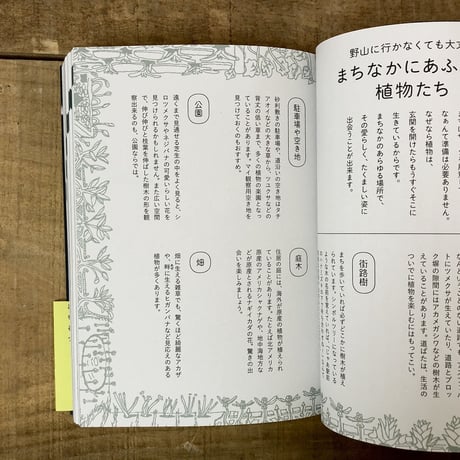 野山に行かなくても大丈
まちなかにあふ
植物たち
なあんて準備は必要ありません。
なぜなら植物は、
玄関を開けたらもうすぐそこに
生きているからです。
まちなかのあらゆる場所で、
その愛らしく、たくましい姿に
出会うことができます。
にツメクサが生えていたり、道路とブロッ
ク塀の隙間にはアカメガシワなどの樹木が生
えていることがあります。道ばたは、生活の
ついでに植物を楽しむにはもってこい。
街路樹
まちを歩いていれば必ずどこかに樹木が植え
られています。シンボルツリーになっている
駐車場や空き地
砂利敷きの駐車場や、道沿いの空き地はタチ
アオイなどの大きな草から、ツユクサなどの
背丈の低い草まで、多くの植物の楽園となっ
ていることがあります。マイ観察用空き地を
見つけておくのもおすすめ。
庭木
住居の庭には、海外が原産の植物が植えられ
ていることがあります。たとえば北アメリカ
原産のアメリカシャクナゲや、地中海地方な
どが原産とされるナギイカダの花。驚きの出
会いを楽しみましょう。
公園
遠くまで見通せる芝生の中をよく見ると、シ
ロツメクサやネジバナの可愛いらしい花を
見つけられるかもしれません。また広い空間
で、伸び伸びと枝葉を伸ばした樹木の形を観
察出来るのも、公園ならでは。
畑
畑に生える雑草でも、驚くほど綺麗なアカザ
や、時に生えるヒガンバナなど見応えのある
植物が多くあります。